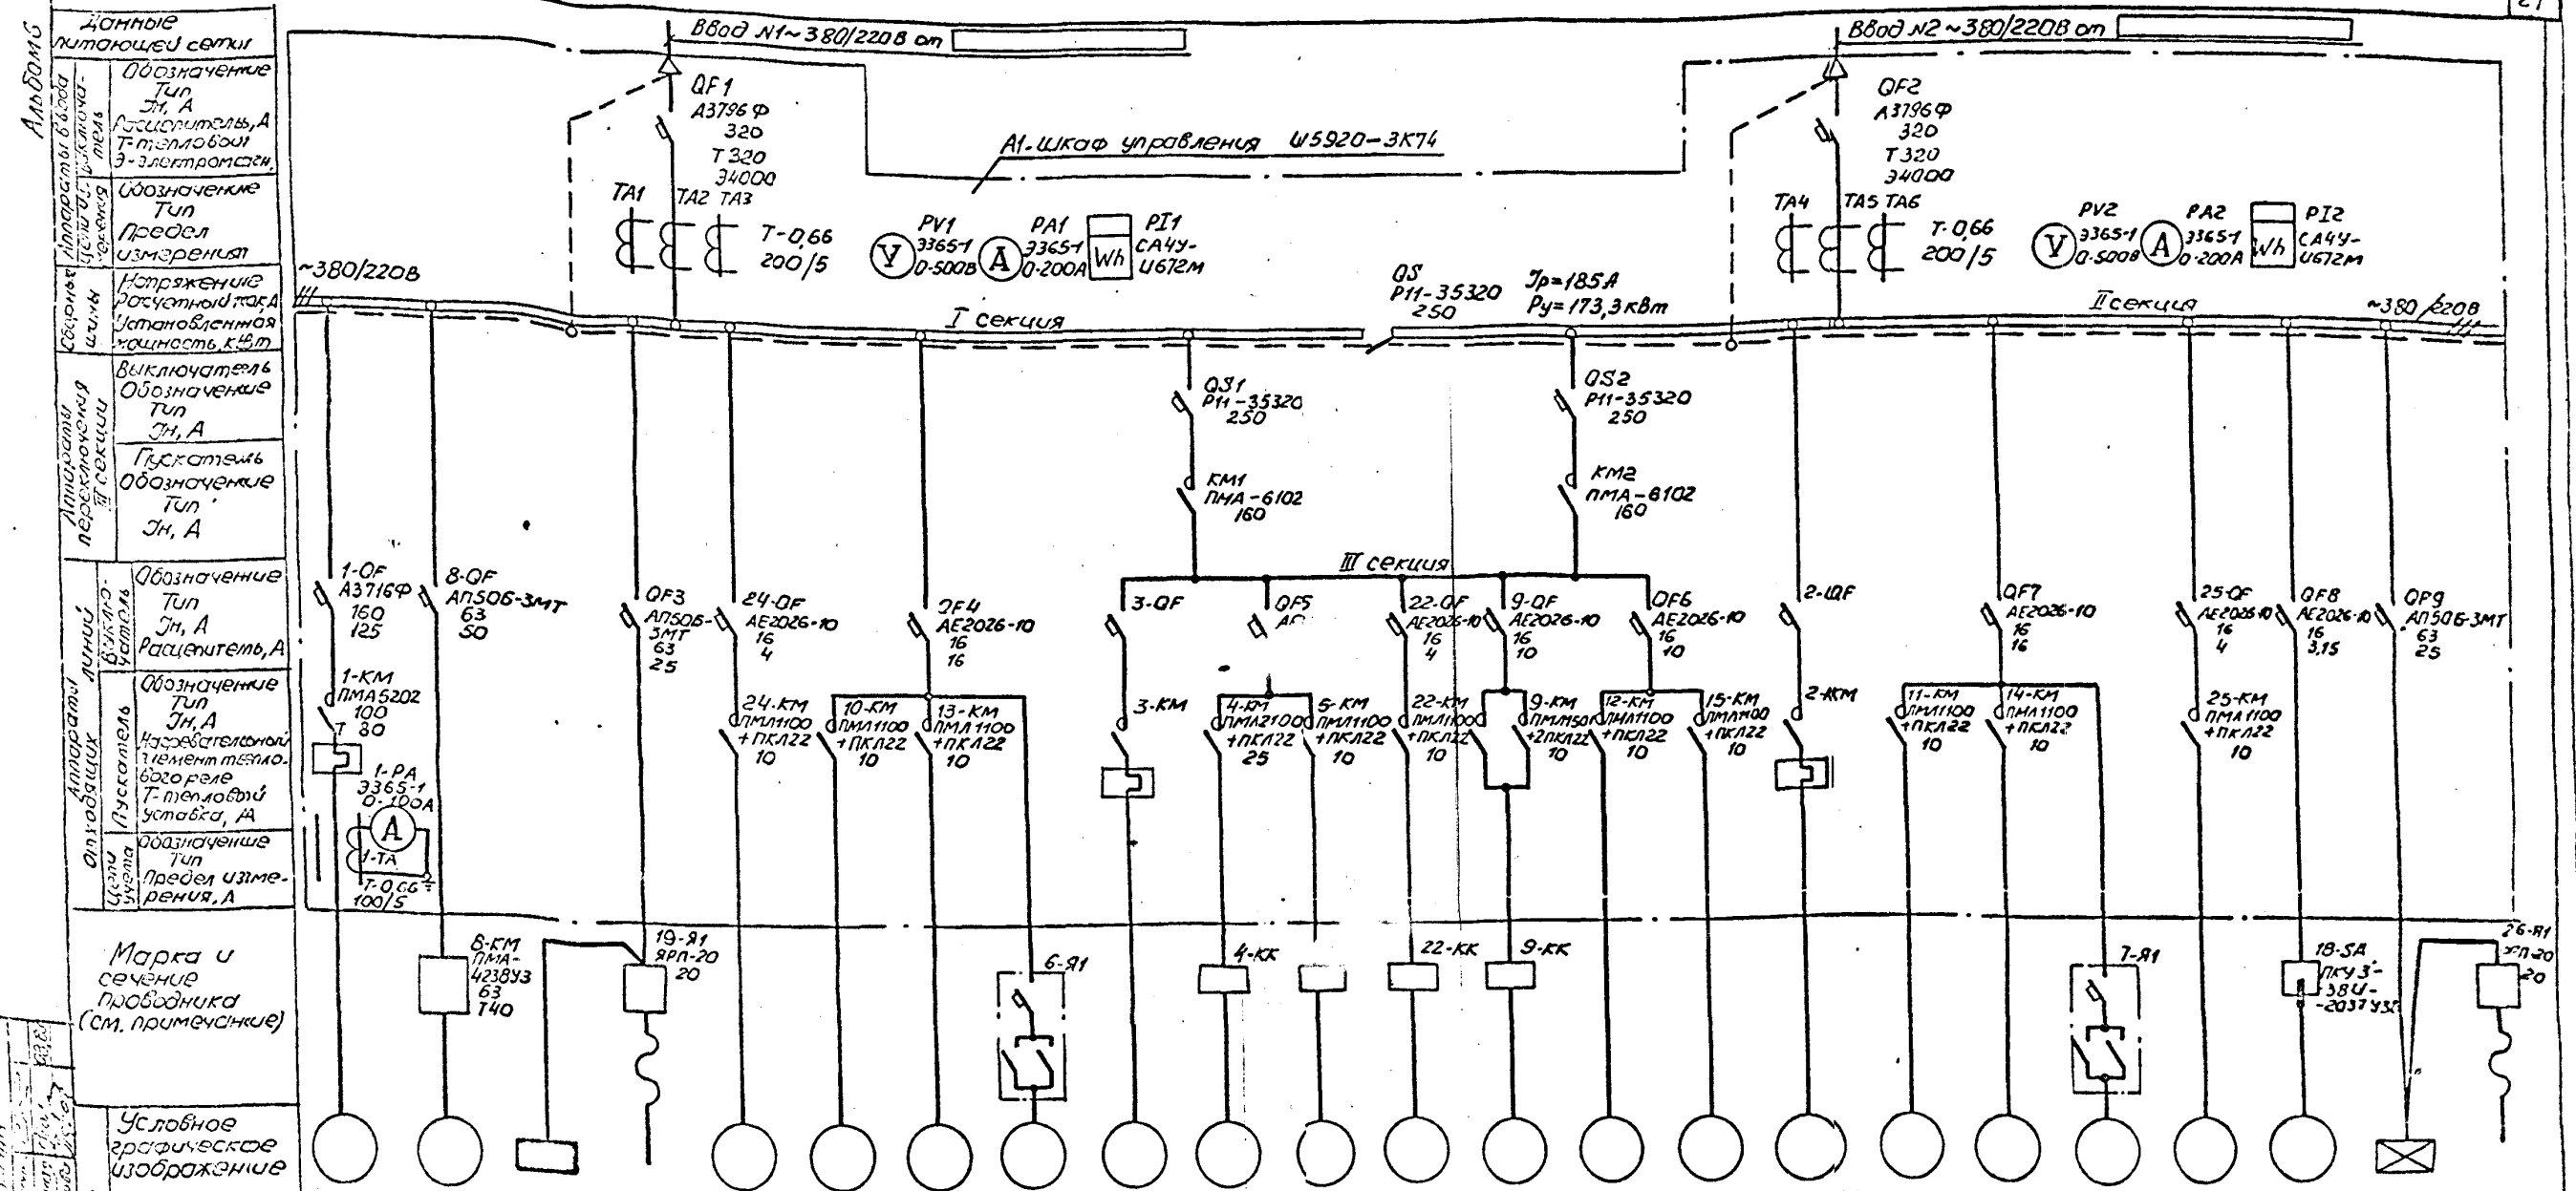 21
Альбом 6
Данные
питающей сети
Аппараты ввода
Выключатель
Обозначение
Тип
Iн, А
Расцепитель, А
Т-тепловой
Э-электромагн.
Обозначение
Тип
Предел
измерения
Сборные
шины
Напряжение
Расчетный ток, А
Установленная
мощность, кВт
Аппараты
переключения
III секции
Выключатель
Обозначение
Тип
Iн, А
Пускатель
Обозначение
Тип
Iн, А
Аппараты
отходящих линий
Выключатель
Обозначение
Тип
Iн, А
Расцепитель, А
Пускатель
Обозначение
Тип
Iн, А
Нагревательный
элемент тепло-
вого реле
Т-тепловой
уставка, А
Цепи
учета
Обозначение
Тип
Предел изме-
рения, А
Марка и
сечение
проводника
(см. примечание)
Условное
графическое
изображение
Ввод N1~380/220В от
QF1
А3796Ф
320
Т320
Э4000
ТА1
ТА2
ТА3
Т-0,66
200/5
PV1
Э365-1
0-500В
V
PA1
Э365-1
0-200А
A
PI1
СА4У-
И672М
Wh
А1-шкаф управления Ш5920-3К74
Ввод N2~380/220В от
QF2
А3796Ф
320
Т320
Э4000
ТА4
ТА5
ТА6
Т-0,66
200/5
PV2
Э365-1
0-500В
V
PA2
Э365-1
0-200А
A
PI2
СА4У-
И672М
Wh
~380/220В
I секция
QS
Р11-35320
250
Iр=185А
Ру=173,3кВт
II секция
~380/220В
QS1
Р11-35320
250
KM1
ПМА-6102
160
QS2
Р11-35320
250
KM2
ПМА-6102
160
III секция
1-QF
А3716Ф
160
125
1-КМ
ПМА5202
100
Т 80
1-РА
Э365-1
0-100А
A
1-ТА
Т-0,66
100/5
8-QF
АП50Б-3МТ
63
50
QF3
АП50Б-
3МТ
63
25
24-QF
АЕ2026-10
16
4
24-КМ
ПМЛ1100
+ПКЛ22
10
QF4
АЕ2026-10
16
16
10-КМ
ПМЛ1100
+ПКЛ22
10
13-КМ
ПМЛ1100
+ПКЛ22
10
3-QF
3-КМ
QF5
4-КМ
ПМЛ2100
+ПКЛ22
25
5-КМ
ПМЛ1100
+ПКЛ22
10
22-QF
АЕ2026-10
16
4
22-КМ
ПМЛ1100
+ПКЛ22
10
9-QF
АЕ2026-10
16
10
9-КМ
ПМЛ1501
+2ПКЛ22
10
QF6
АЕ2026-10
16
10
12-КМ
ПМЛ1100
+ПКЛ22
10
15-КМ
ПМЛ1100
+ПКЛ22
10
2-QF
2-КМ
QF7
АЕ2026-10
16
16
11-КМ
ПМЛ1100
+ПКЛ22
10
14-КМ
ПМЛ1100
+ПКЛ22
10
25-QF
АЕ2026-10
16
4
25-КМ
ПМЛ1100
+ПКЛ22
10
QF8
АЕ2026-10
16
3,15
QF9
АП50Б-3МТ
63
25
8-КМ
ПМА-
4238У3
63
Т40
19-Я1
ЯРП-20
20
6-Я1
4-КК
22-КК
9-КК
7-Я1
18-SA
ПКУ3-
-2037У3
26-Я1
ЯРП-20
20